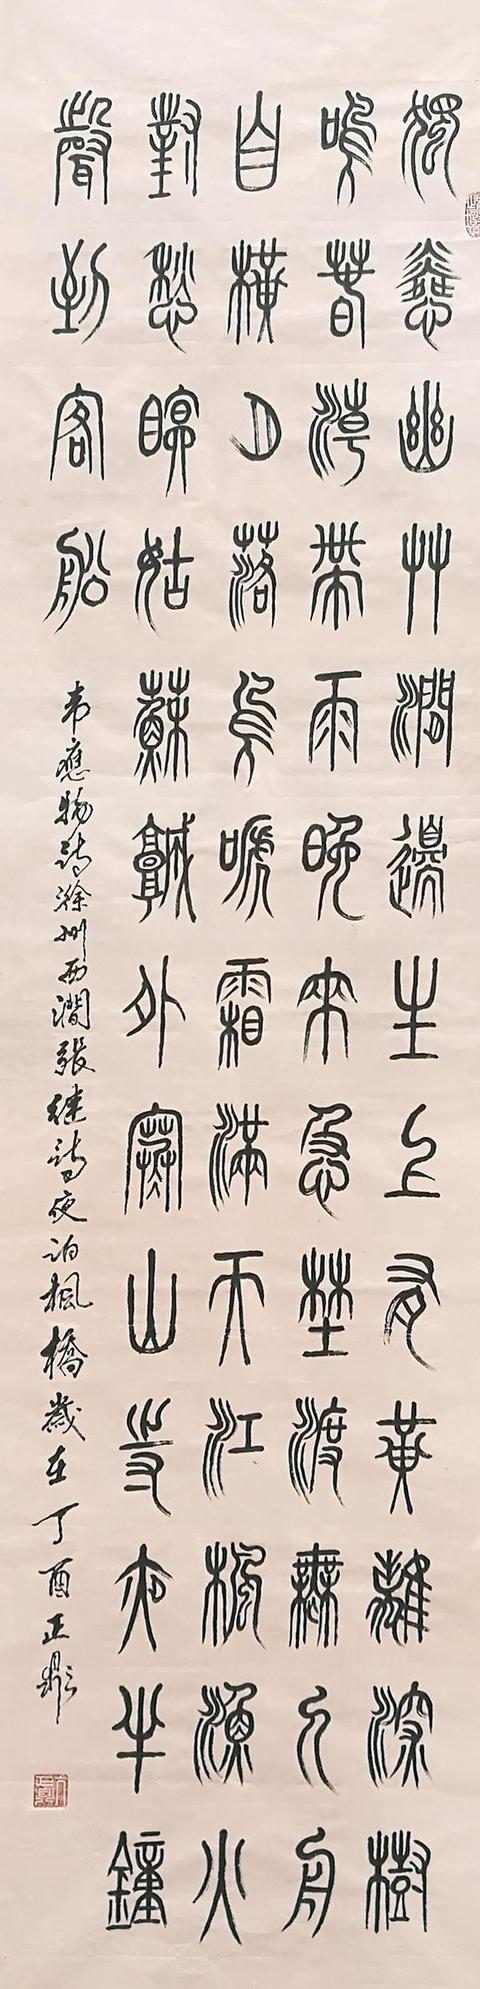 獨憐幽艸澗邊生上有黃鸝深樹
鳴春潮帶雨晚來急野渡無人舟
自橫月落烏嗁霜滿天江楓漁火
對愁眠姑蘇城外寒山寺夜半鐘
聲到客船
韦應物詩滁州西澗張继詩夜泊楓橋歲在丁酉正鼎